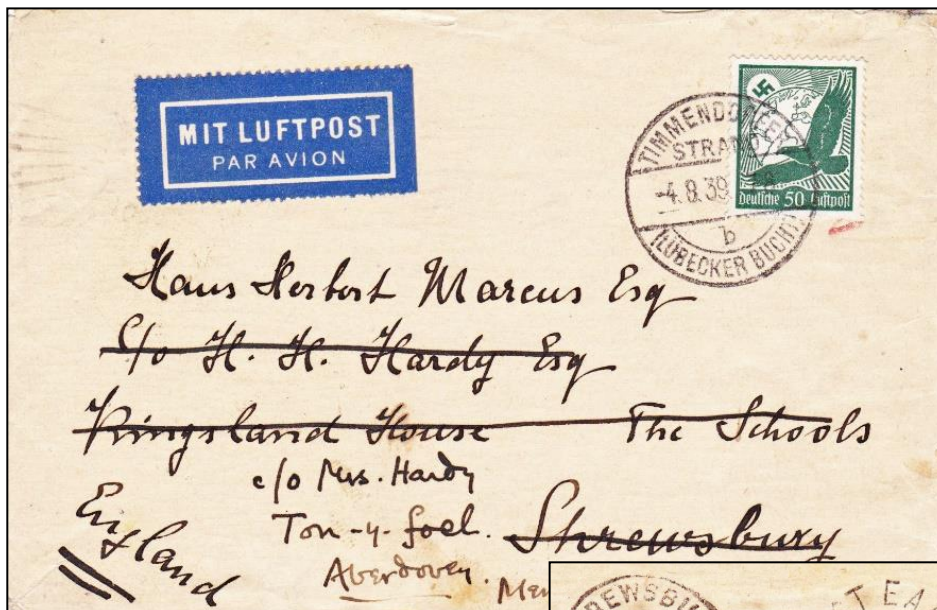 MIT LUFTPOST
PAR AVION
TIMMENDORFER
STRAND
-4.8.39
b
(LÜBECKER BUCHT)
Deutsche 50 Luftpost
Haus Herbert Marcus Esq
c/o H. H. Hardy Esq
Kingsland House The Schools
c/o Mrs. Hardy
England
Ton-y-foel.
Shrewsbury
Aberdovey.
Mer
REWSBU
T EA